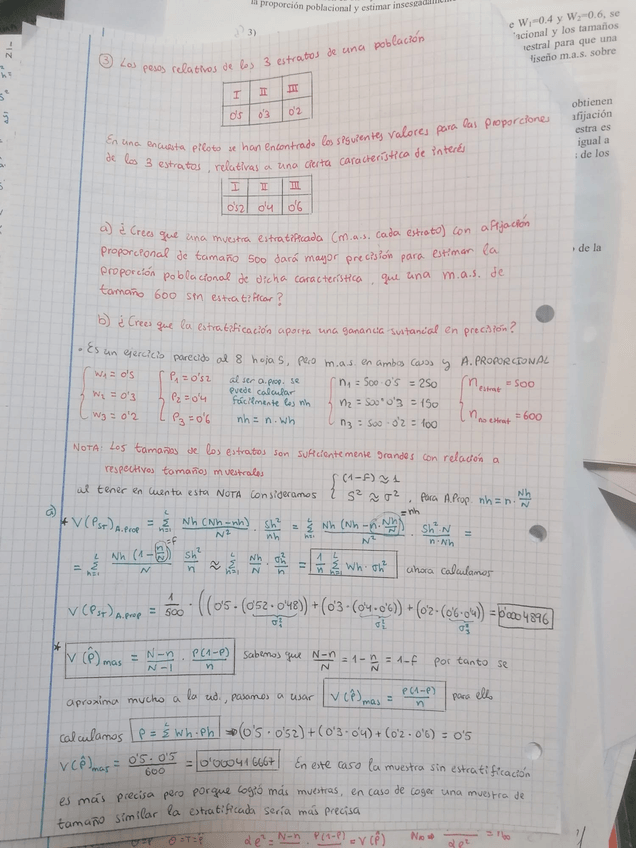 la proporción poblacional y estimar
e W₁=0.4 y W₂=0.6, se
acional y los tamaños
uestral para que una
diseño m.a.s. sobre
obtienen
afijación
estra es
igual a
de los
de la
3)
③ Los pesos relativos de los 3 estratos de una población
I II III
0'5 0'3 0'2
En una encuesta piloto se han encontrado los siguientes valores para las proporciones
de los 3 estratos, relativas a una cierta característica de interés
I II III
0'52 0'4 0'6
a) ¿Crees que una muestra estratificada (m.a.s. cada estrato) con afijación
proporcional de tamaño 500 dará mayor precisión para estimar la
proporción poblacional de dicha característica, que una m.a.s. de
tamaño 600 sin estratificar?
b) ¿Crees que la estratificación aporta una ganancia sustancial en precisión?
• Es un ejercicio parecido al 8 hoja 5, pero m.a.s. en ambos casos y A.PROPORCIONAL
W₁ = 0'5 P₁ = 0'52 al ser a.prop. se n₁ = 500·0'5 = 250 n estrat = 500
W₂ = 0'3 P₂ = 0'4 puede calcular fácilmente los nh n₂ = 500·0'3 = 150
W₃ = 0'2 P₃ = 0'6 nh = n·Wh n₃ = 500·0'2 = 100 n no estrat = 600
NOTA: Los tamaños de los estratos son suficientemente grandes con relación a
respectivos tamaños muestrales
al tener en cuenta esta NOTA consideramos { (1-f) ≈ 1 S² ≈ σ² , para A.Prop. nh = n·Nh/N
a) * V(P_ST)A.prop = Σ_{h=1}^{L} Nh(Nh-nh)/N² · Sh²/nh = Σ_{h=1}^{L} Nh(Nh-n·Nh/N)/N² · Sh²N/n·Nh = =nh
= Σ_{h=1}^{L} Nh(1-n/N)/N · Sh²/n ≈ Σ_{h=1}^{L} Nh/N · σh²/n = 1/n Σ_{h=1}^{L} Wh·σh² ahora calculamos =f
V(P_ST)A.prop = 1/500 · ((0'5·(0'52·0'48)) + (0'3·(0'4·0'6)) + (0'2·(0'6·0'4))) = 0'0004896
σ₁² σ₂² σ₃²
* V(P̂)mas = N-n/N-1 · P(1-P)/n Sabemos que N-n/N = 1 - n/N = 1-f por tanto se
aproxima mucho a la ud., pasamos a usar V(P̂)mas = P(1-P)/n para ello
calculamos P = Σ_{h=1}^{L} Wh·Ph ⇒ (0'5·0'52) + (0'3·0'4) + (0'2·0'6) = 0'5
V(P̂)mas = 0'5·0'5/600 = 0'000416667 En este caso la muestra sin estratificación
es más precisa pero porque cogió más muestras, en caso de coger una muestra de
tamaño similar la estratificada sería más precisa
N-n P(1-P) = V(P̂)